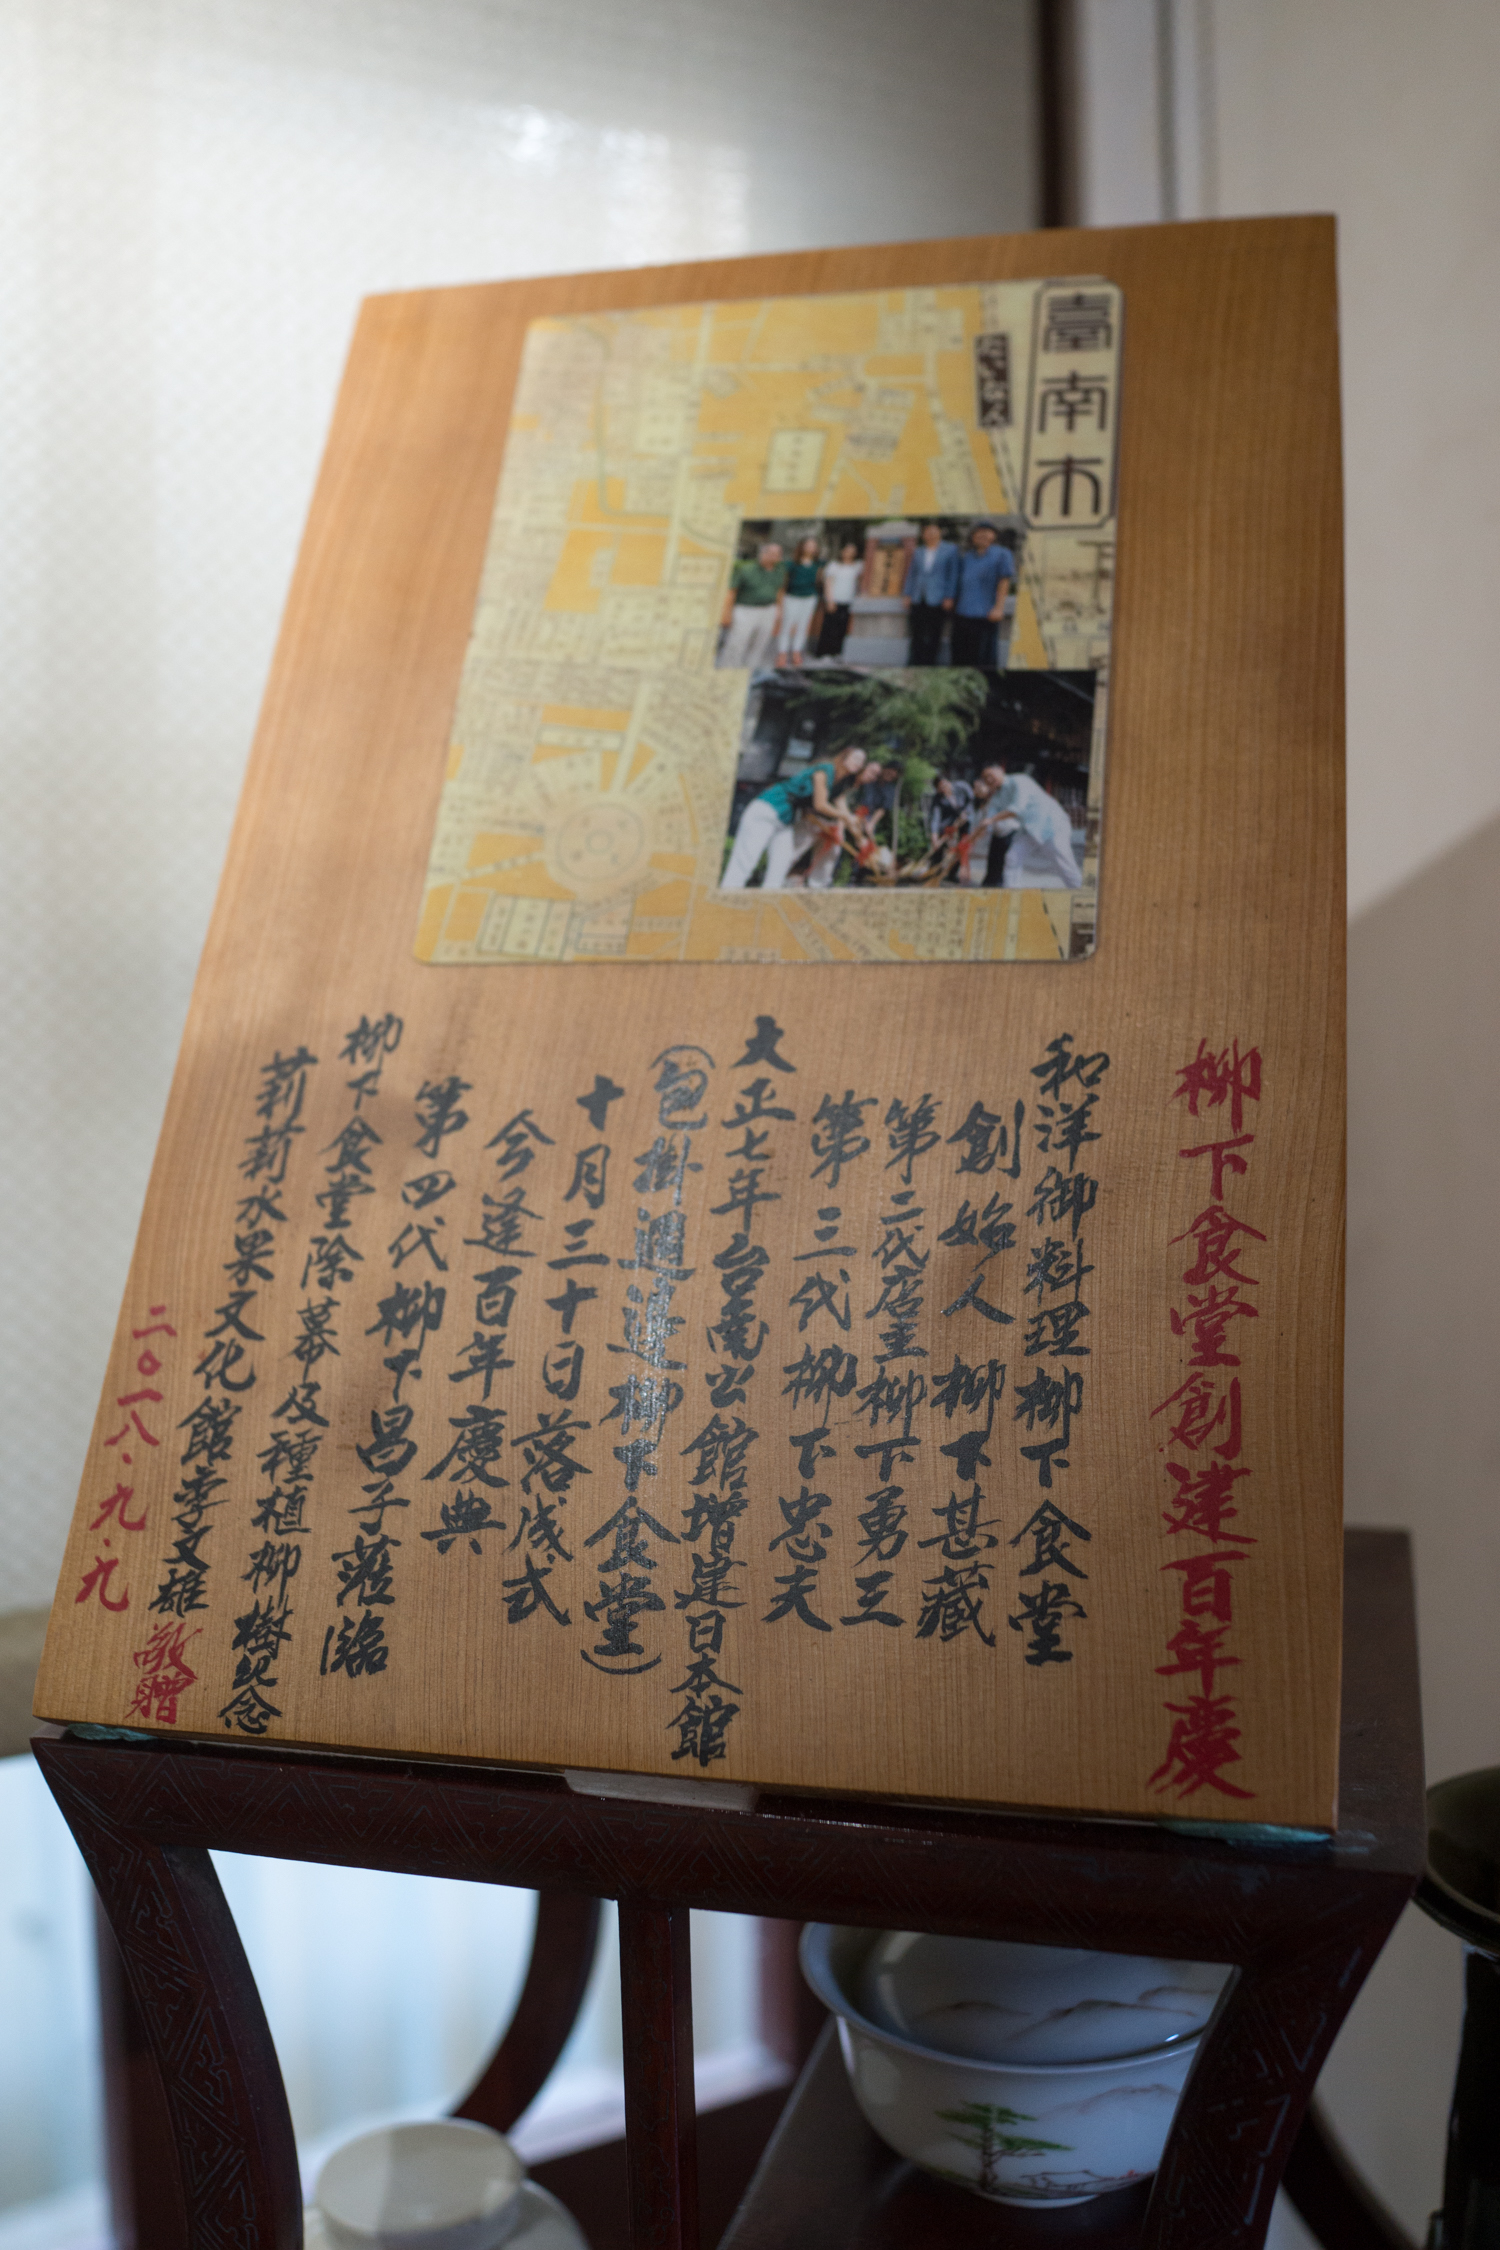 臺南市
柳下食堂創建百年慶
和洋御料理柳下食堂
創始人柳下甚藏
第二代店主柳下勇三
第三代柳下忠夫
大正七年台南公館增建日本館
(包掛週邊柳下食堂)
十月三十日落成式
今逢百年慶典
第四代柳下昌子蒞臨
柳下食堂除幕及種植柳樹紀念
莉莉水果文化館李文雄敬贈
二〇一八.九.九